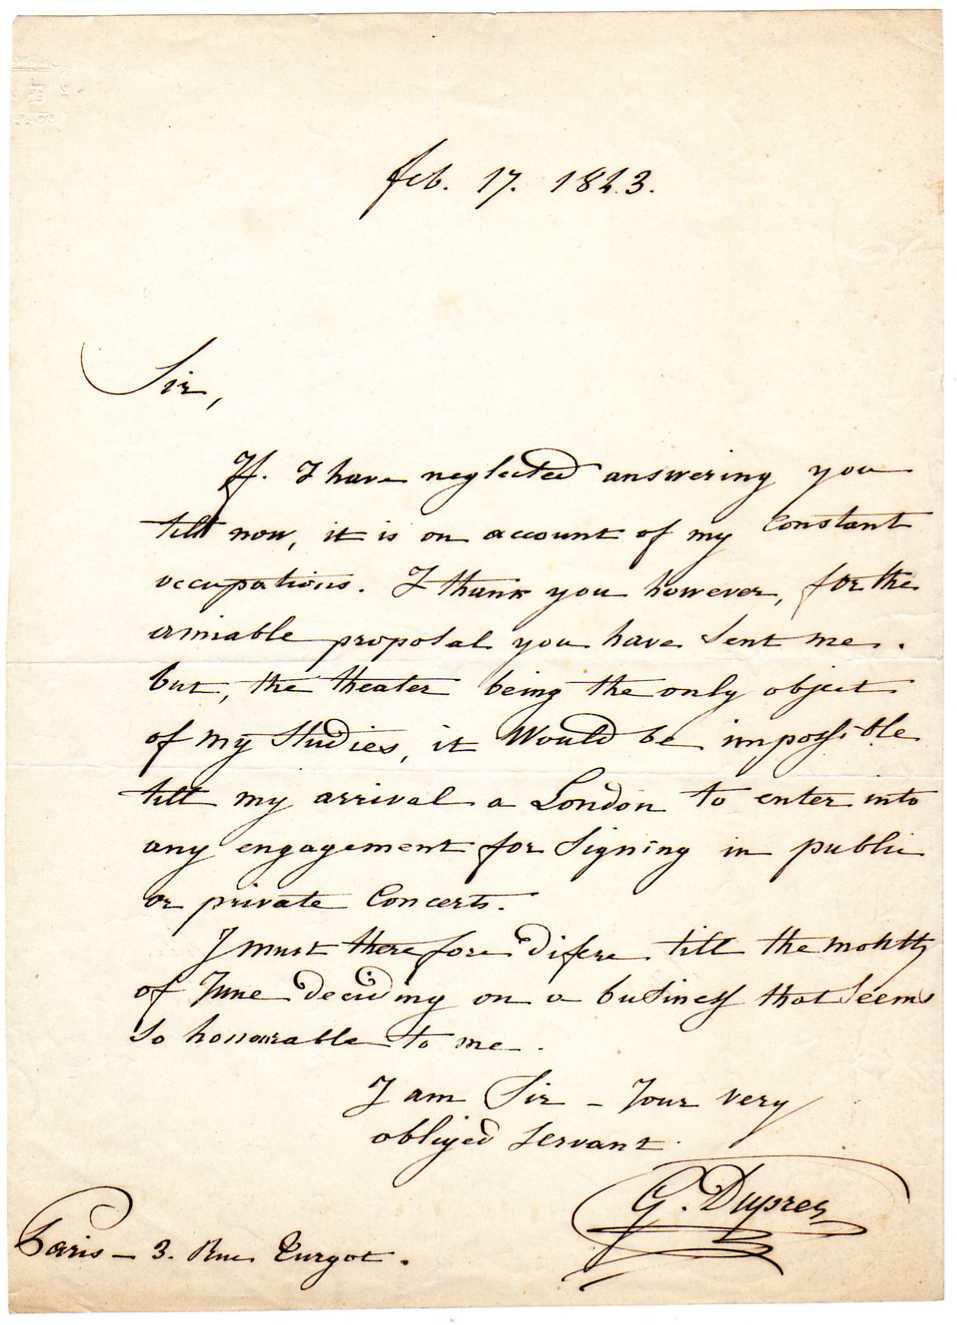 Feb. 17. 1843.
Sir,
If. I have neglected answering you
till now, it is on account of my constant
occupations. I thank you however, for the
amiable proposal you have sent me.
but, the theater being the only object
of my studies, it Would be impossible
till my arrival a London to enter into
any engagement for Signing in public
or private Concerts.
I must therefore difere till the month
of June deciding on a business that Seems
so honourable to me.
I am Sir - Your very
obliged servant.
G. Duprez
Paris - 3. Rue Turgot.